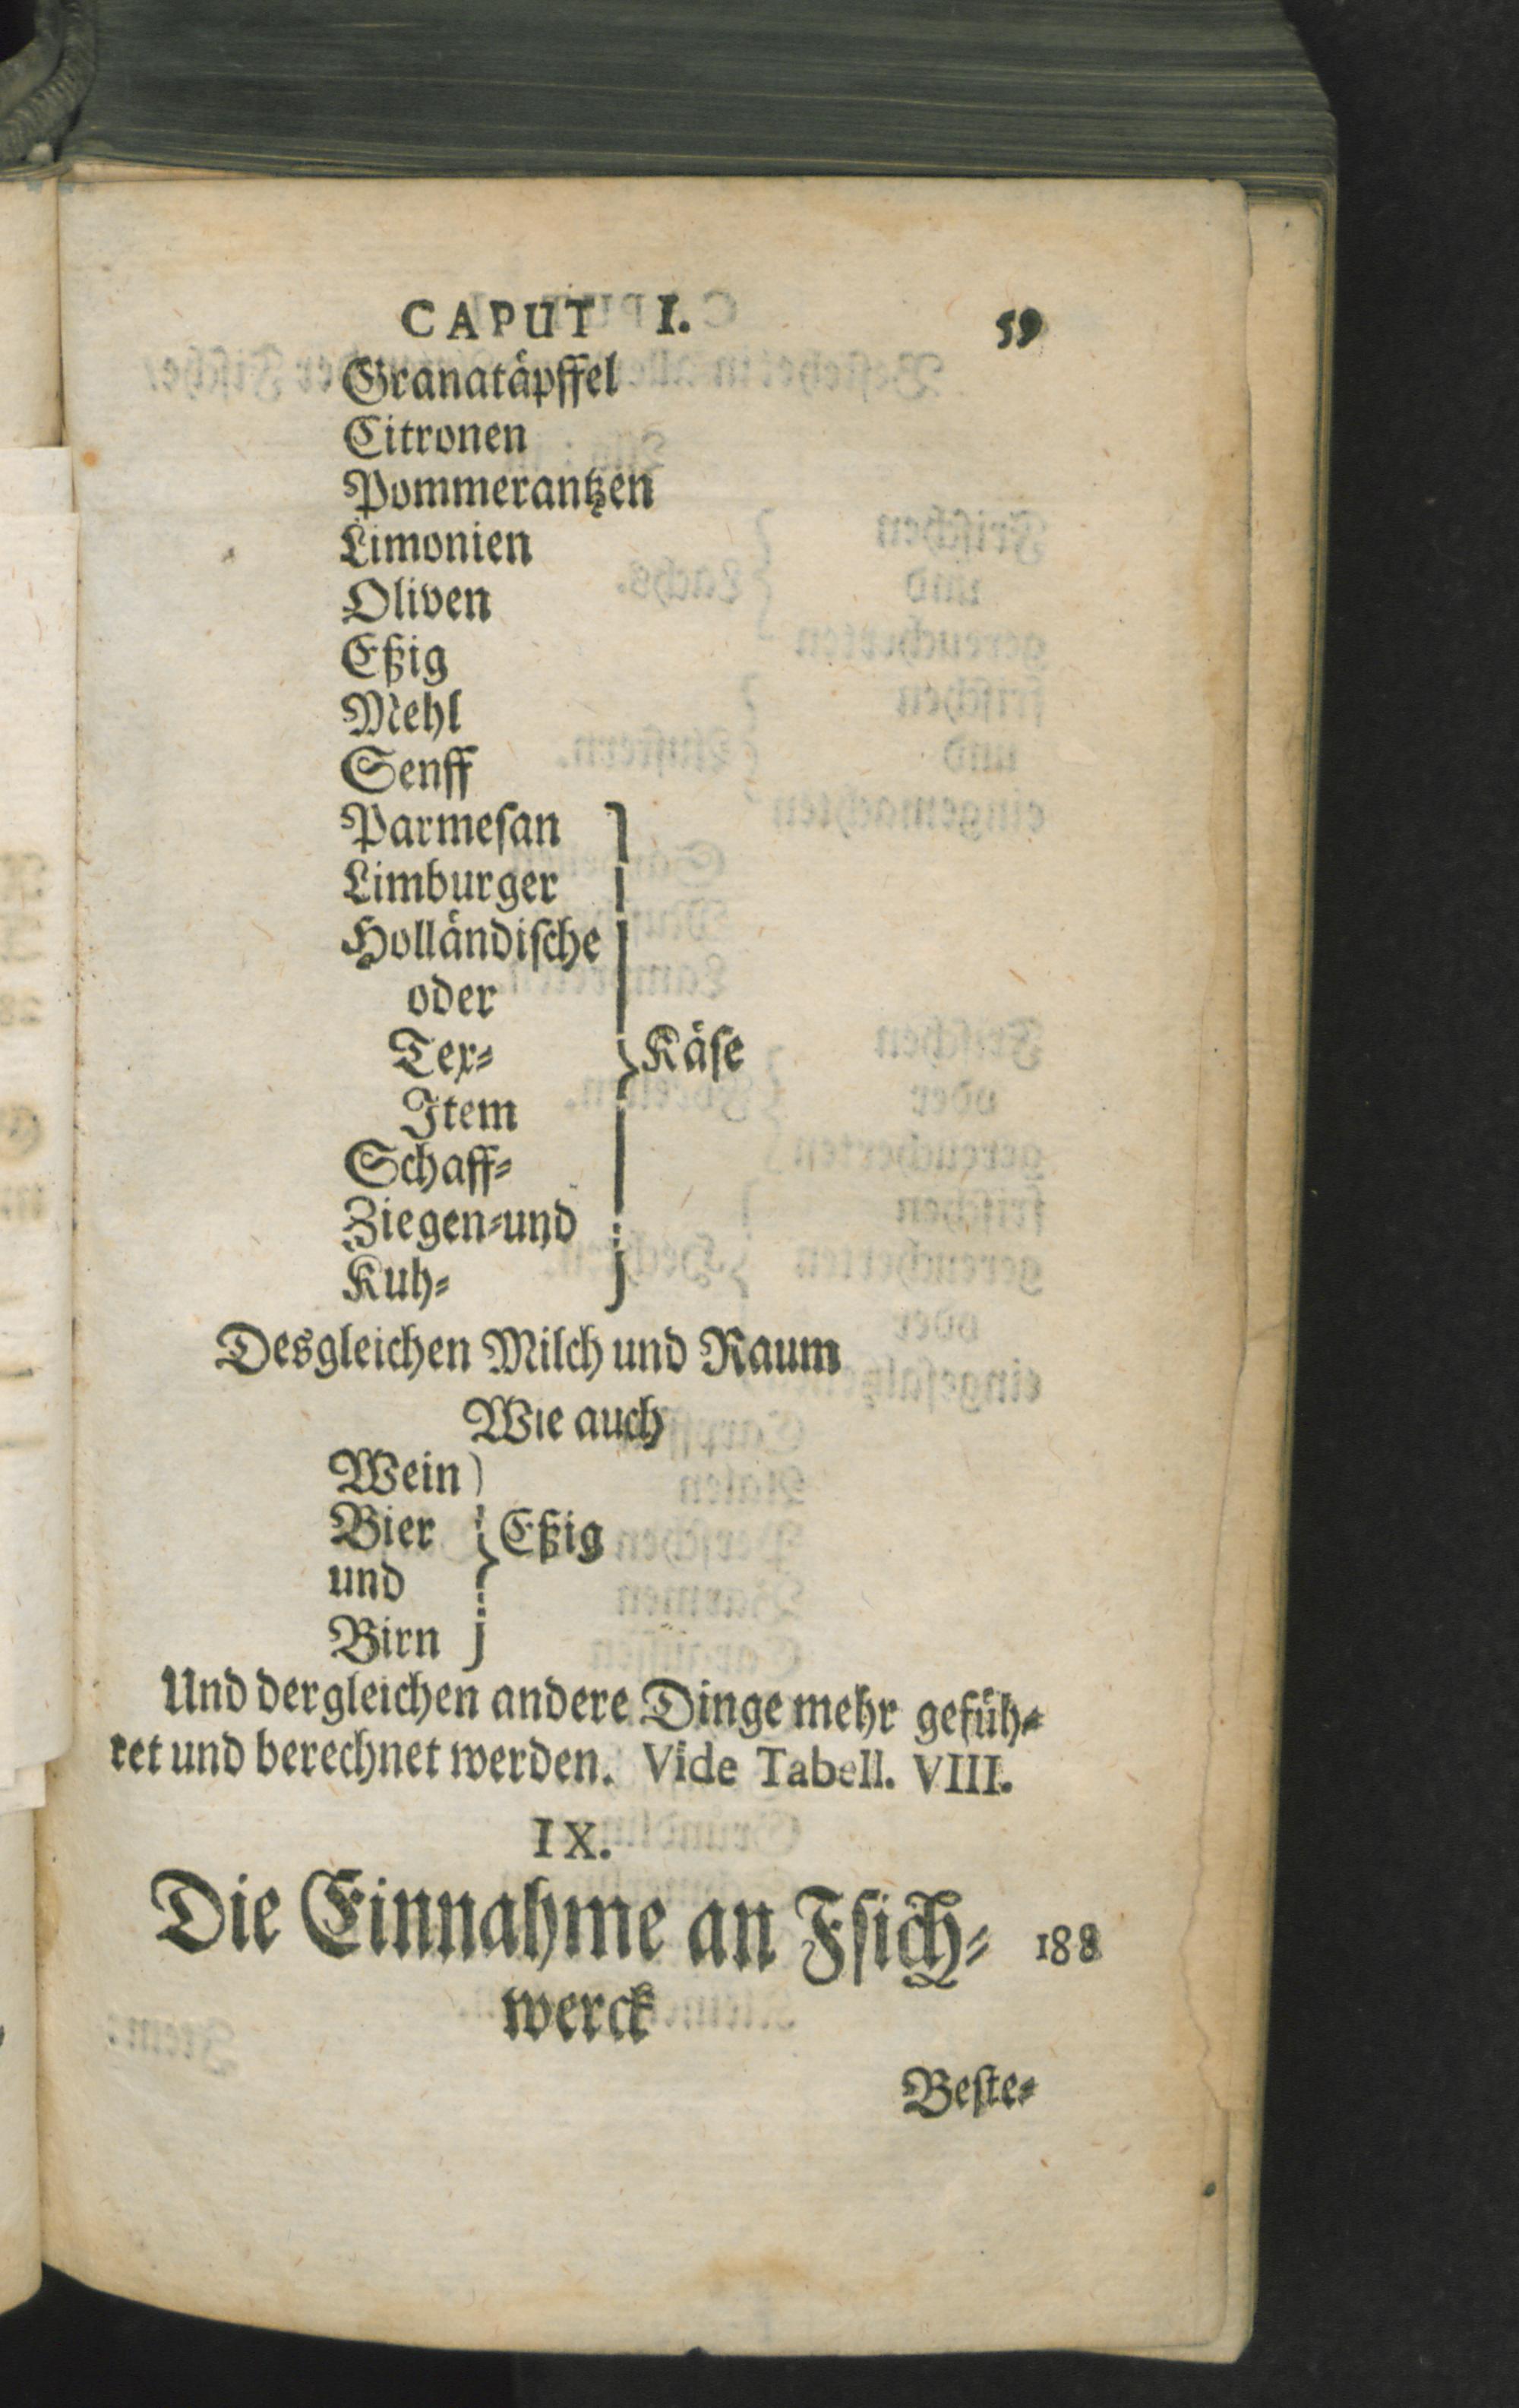 CAPUT I. 59
Granatäpffel
Citronen
Pommerantzen
Limonien
Oliven
Eßig
Mehl
Senff
Parmeſan
Limburger
Holländiſche
oder
Tex⸗
Käſe
Item
Schaff⸗
Ziegen⸗und
Kuh⸗
Desgleichen Milch und Raum
Wie auch
Wein
Bier
Eßig
und
Birn
Und dergleichen andere Dinge mehr gefüh⸗
ret und berechnet werden. Vide Tabell. VIII.
IX.
Die Einnahme an Fſich⸗ 188
werck
Beſte⸗